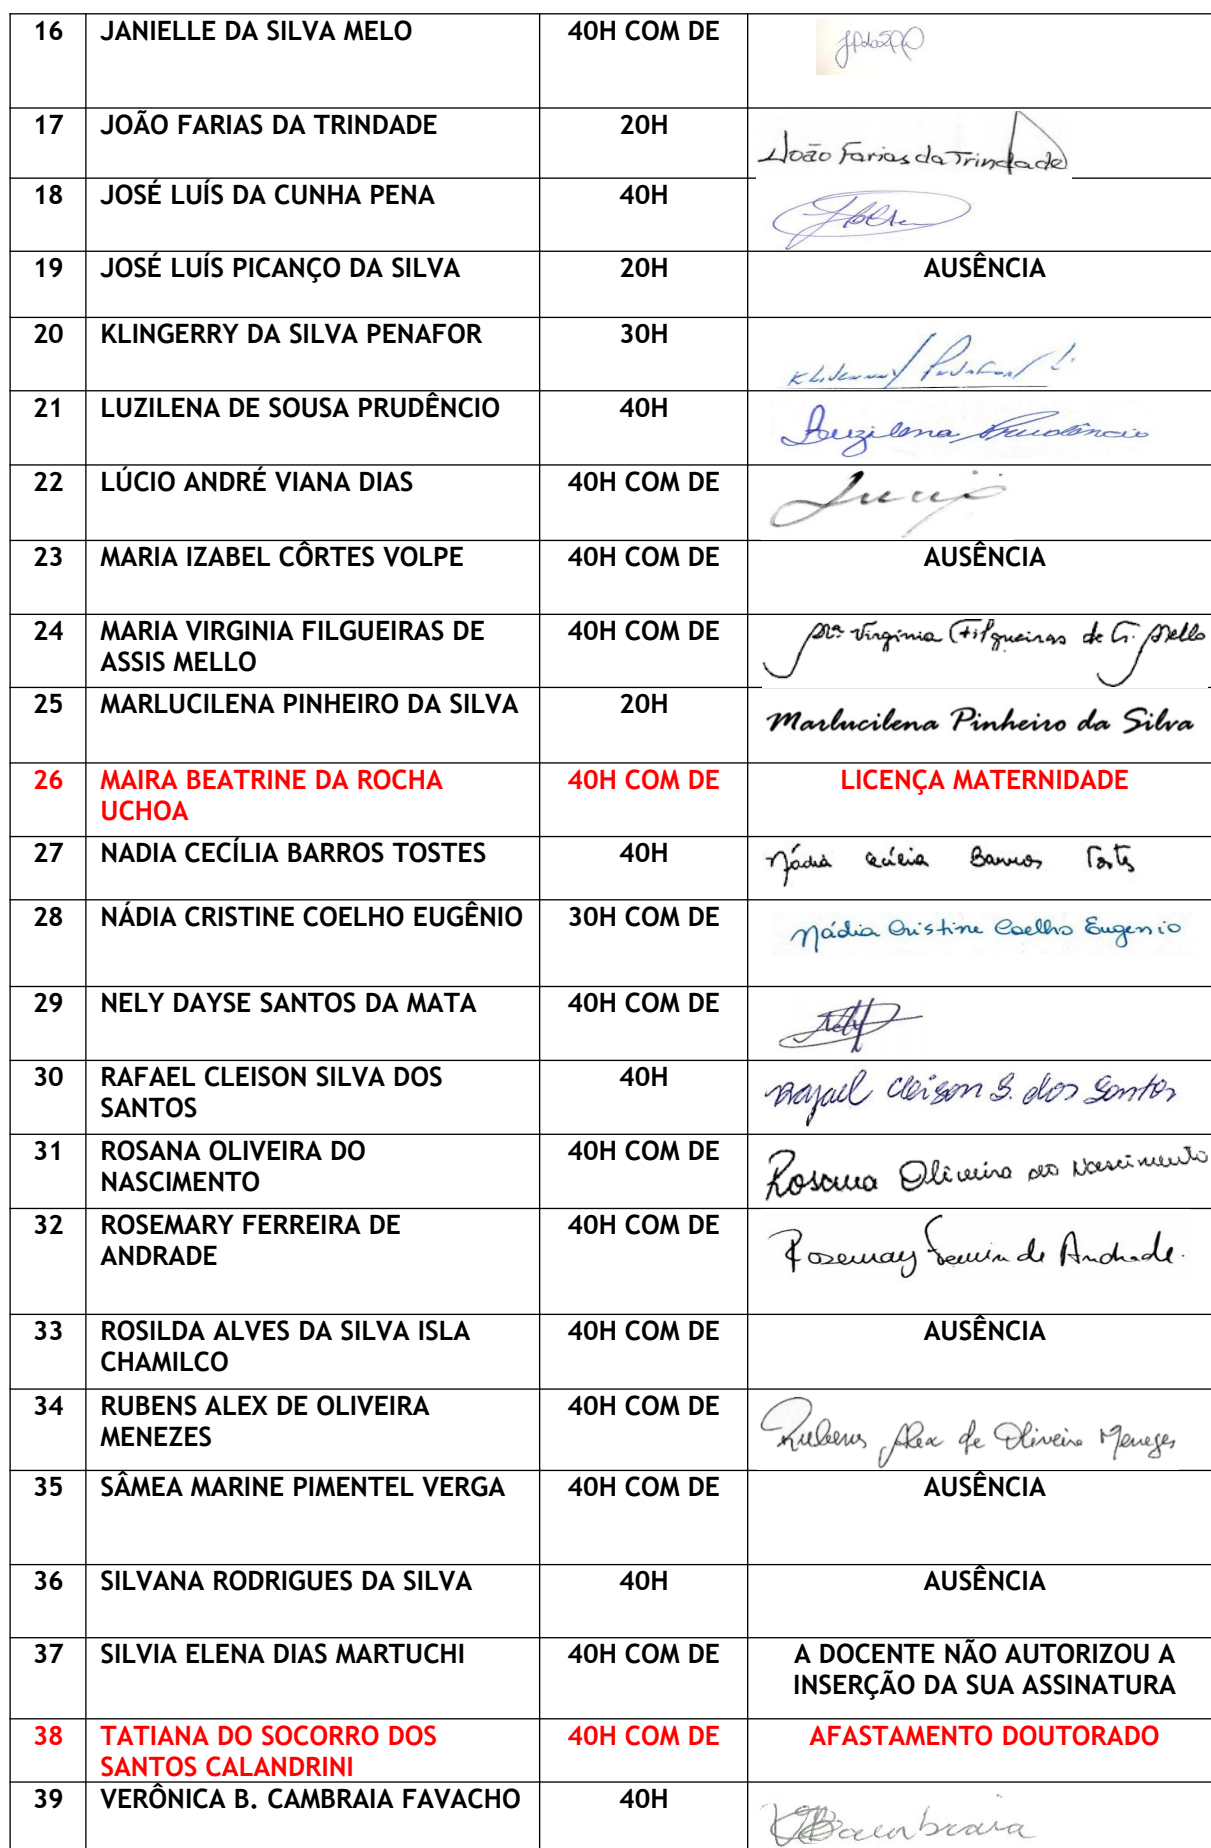 16 JANIELLE DA SILVA MELO 40H COM DE
17 JOÃO FARIAS DA TRINDADE 20H
João Farias da Trindade
18 JOSÉ LUÍS DA CUNHA PENA 40H
19 JOSÉ LUÍS PICANÇO DA SILVA 20H AUSÊNCIA
20 KLINGERRY DA SILVA PENAFOR 30H
21 LUZILENA DE SOUSA PRUDÊNCIO 40H
Luzilena Prudêncio
22 LÚCIO ANDRÉ VIANA DIAS 40H COM DE
23 MARIA IZABEL CÔRTES VOLPE 40H COM DE AUSÊNCIA
24 MARIA VIRGINIA FILGUEIRAS DE 40H COM DE
ASSIS MELLO
Mª Virginia Filgueiras de A. Mello
25 MARLUCILENA PINHEIRO DA SILVA 20H
Marlucilena Pinheiro da Silva
26 MAIRA BEATRINE DA ROCHA 40H COM DE LICENÇA MATERNIDADE
UCHOA
27 NADIA CECÍLIA BARROS TOSTES 40H
Nádia Cecília Barros Tostes
28 NÁDIA CRISTINE COELHO EUGÊNIO 30H COM DE
Nádia Cristine Coelho Eugenio
29 NELY DAYSE SANTOS DA MATA 40H COM DE
30 RAFAEL CLEISON SILVA DOS 40H
SANTOS
Rafael Cleison S. dos Santos
31 ROSANA OLIVEIRA DO 40H COM DE
NASCIMENTO
Rosana Oliveira do Nascimento
32 ROSEMARY FERREIRA DE 40H COM DE
ANDRADE
Rosemary Ferreira de Andrade.
33 ROSILDA ALVES DA SILVA ISLA 40H COM DE AUSÊNCIA
CHAMILCO
34 RUBENS ALEX DE OLIVEIRA 40H COM DE
MENEZES
Rubens Alex de Oliveira Menezes
35 SÂMEA MARINE PIMENTEL VERGA 40H COM DE AUSÊNCIA
36 SILVANA RODRIGUES DA SILVA 40H AUSÊNCIA
37 SILVIA ELENA DIAS MARTUCHI 40H COM DE A DOCENTE NÃO AUTORIZOU A
INSERÇÃO DA SUA ASSINATURA
38 TATIANA DO SOCORRO DOS 40H COM DE AFASTAMENTO DOUTORADO
SANTOS CALANDRINI
39 VERÔNICA B. CAMBRAIA FAVACHO 40H